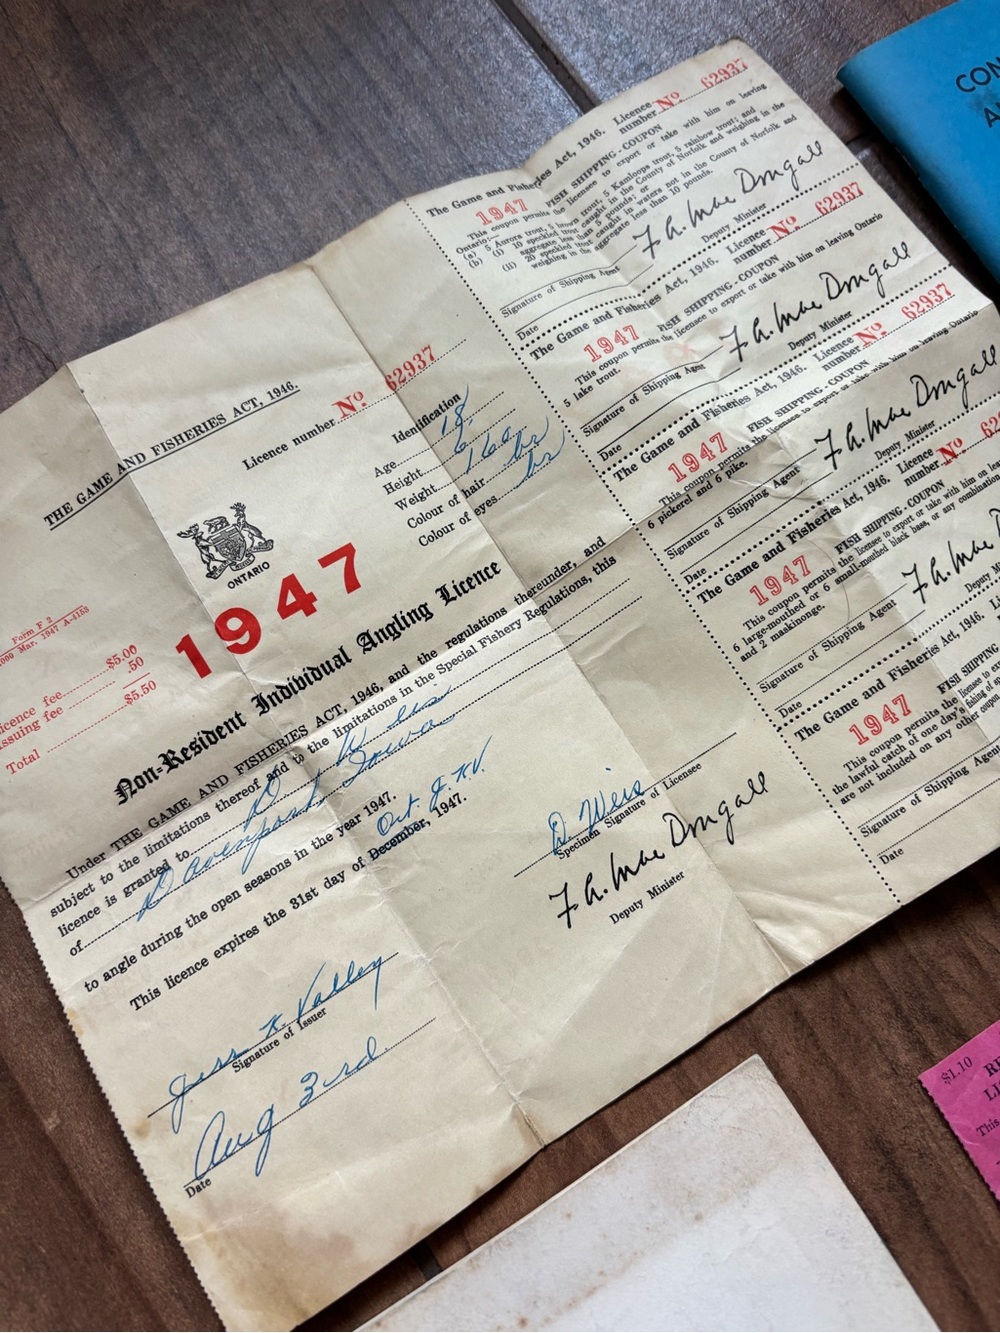 THE GAME AND FISHERIES ACT, 1946.
Licence number Nº 62937
Identification
Age 18
Height 6
Weight 160
Colour of hair br
Colour of eyes br
ONTARIO
Form F 2
Mar. 1947 A-4153
Licence fee $5.00
Issuing fee .50
Total $5.50
1947
Non-Resident Individual Angling Licence
Under THE GAME AND FISHERIES ACT, 1946, and the regulations thereunder, and
subject to the limitations thereof and to the limitations in the Special Fishery Regulations, this
licence is granted to D
of Davenport, Iowa
to angle during the open seasons in the year 1947.
This licence expires the 31st day of December, 1947.
Oct.
D Weis
Specimen Signature of Licensee
F A. MacDougall
Deputy Minister
Jess K Valley
Signature of Issuer
Aug 3rd
Date
The Game and Fisheries Act, 1946. Licence number Nº 62937
1947 FISH SHIPPING-COUPON
This coupon permits the licensee to export or take with him on leaving
Ontario:—
(a) 5 Aurora trout, 5 brown trout, 5 Kamloops trout, 5 rainbow trout; and
(b) (i) 10 speckled trout caught in the County of Norfolk and weighing in the
aggregate less than 5 pounds; or
(ii) 20 speckled trout caught in waters not in the County of Norfolk and
weighing in the aggregate less than 10 pounds.
F A. MacDougall
Signature of Shipping Agent
Deputy Minister
Date
The Game and Fisheries Act, 1946. Licence number Nº 62937
1947 FISH SHIPPING-COUPON
This coupon permits the licensee to export or take with him on leaving Ontario
5 lake trout.
F A. MacDougall
Signature of Shipping Agent
Deputy Minister
Date
The Game and Fisheries Act, 1946. Licence number Nº 62937
1947 FISH SHIPPING-COUPON
This coupon permits the licensee to export or take with him on leaving Ontario
6 pickerel and 6 pike.
F A. MacDougall
Signature of Shipping Agent
Deputy Minister
Date
The Game and Fisheries Act, 1946. Licence number Nº 62
1947 FISH SHIPPING-COUPON
This coupon permits the licensee to export or take with him on
6 large-mouthed or 6 small-mouthed black bass, or any combination
and 2 maskinonge.
F A. Mac D
Signature of Shipping Agent
Deputy
Date
The Game and Fisheries Act, 1946.
1947 FISH SHIPPING
This coupon permits the licensee to export
the lawful catch of one day's fishing of
are not included on any other coupon
Signature of Shipping Agent
Date
CON
A
$1.10
This